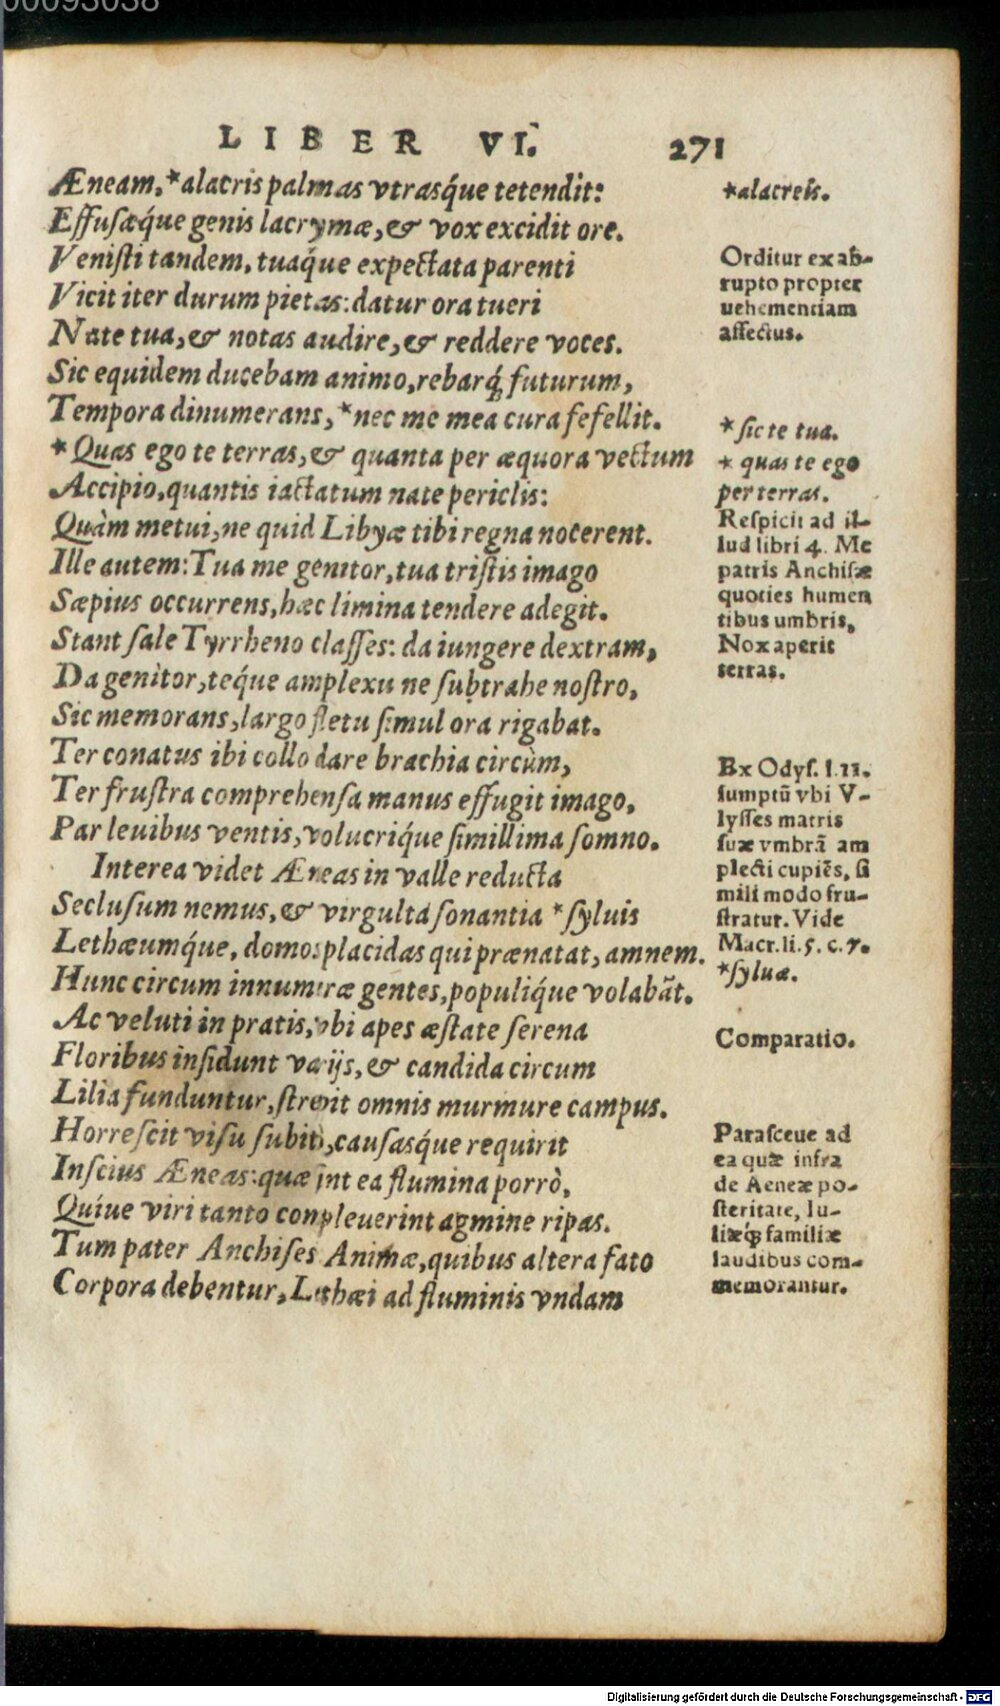 00093038
LIBER VI. 271
Æneam, *alacris palmas vtrasq́ue tetendit:
Effusæq́ue genis lacrymæ, & vox excidit ore.
Venisti tandem, tuaq́ue expectata parenti
Vicit iter durum pietas: datur ora tueri
Nate tua, & notas audire, & reddere voces.
Sic equidem ducebam animo, rebarq́; futurum,
Tempora dinumerans, *nec me mea cura fefellit.
*Quas ego te terras, & quanta per æquora vectum
Accipio, quantis iactatum nate periclis:
Quàm metui, ne quid Libyæ tibi regna nocerent.
Ille autem: Tua me genitor, tua tristis imago
Sæpius occurrens, hæc limina tendere adegit.
Stant sale Tyrrheno classes: da iungere dextram,
Da genitor, teq́ue amplexu ne subtrahe nostro,
Sic memorans, largo fletu simul ora rigabat.
Ter conatus ibi collo dare brachia circùm,
Ter frustra comprehensa manus effugit imago,
Par leuibus ventis, volucriq́ue simillima somno.
Interea videt Æneas in valle reducta
Seclusum nemus, & virgulta sonantia *syluis
Lethæumq́ue, domos placidas qui prænatat, amnem.
Hunc circum innumeræ gentes, populiq́ue volabāt.
Ac veluti in pratis, vbi apes æstate serena
Floribus insidunt varijs, & candida circum
Lilia funduntur, strepit omnis murmure campus.
Horrescit visu subitò, causasq́ue requirit
Inscius Æneas: quæ sint ea flumina porrò,
Quíue viri tanto conpleuerint agmine ripas.
Tum pater Anchises Animæ, quibus altera fato
Corpora debentur, Lethæi ad fluminis vndam
*alacreis.
Orditur ex ab-
rupto propter
uehementiam
affectus.
*sic te tua.
*quas te ego
per terras.
Respicit ad il-
lud libri 4. Me
patris Anchisæ
quoties humen
tibus umbris,
Nox aperit
terras.
Ex Odys. l.11.
sumptū vbi V-
lysses matris
suæ vmbrā am
plecti cupiēs, si
mili modo fru-
stratur. Vide
Macr. li. 5. c. 7.
*syluæ.
Comparatio.
Parasceue ad
ea quæ infra
de Aeneæ po-
steritate, Iu-
liæq́; familiæ
laudibus com-
memorantur.
Digitalisierung gefördert durch die Deutsche Forschungsgemeinschaft - DFG